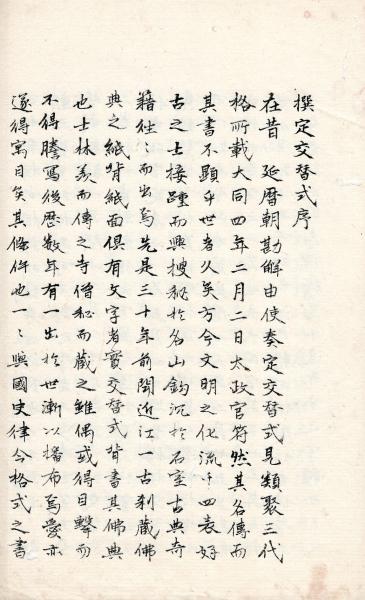 撰定交替式序
在昔　延暦朝勘解由使奏定交替式見類聚三代
格所載大同四年二月二日太政官符然其名傳而
其書不顯乎世者久矣方今文明之化流乎四表好
古之士接踵而興搜秘於名山鈎沉於石室古典奇
籍往〻而出焉先是三十年前聞近江一古刹藏佛
典之紙背紙面俱有文字者實交替式背書其佛典
也士林羨而傳之寺僧秘而藏之雖偶或得目擊而
不得謄寫後歷數年有一出於世漸以播布焉愛亦
遂得寓目矣其條件也一〻與國史律令格式之書